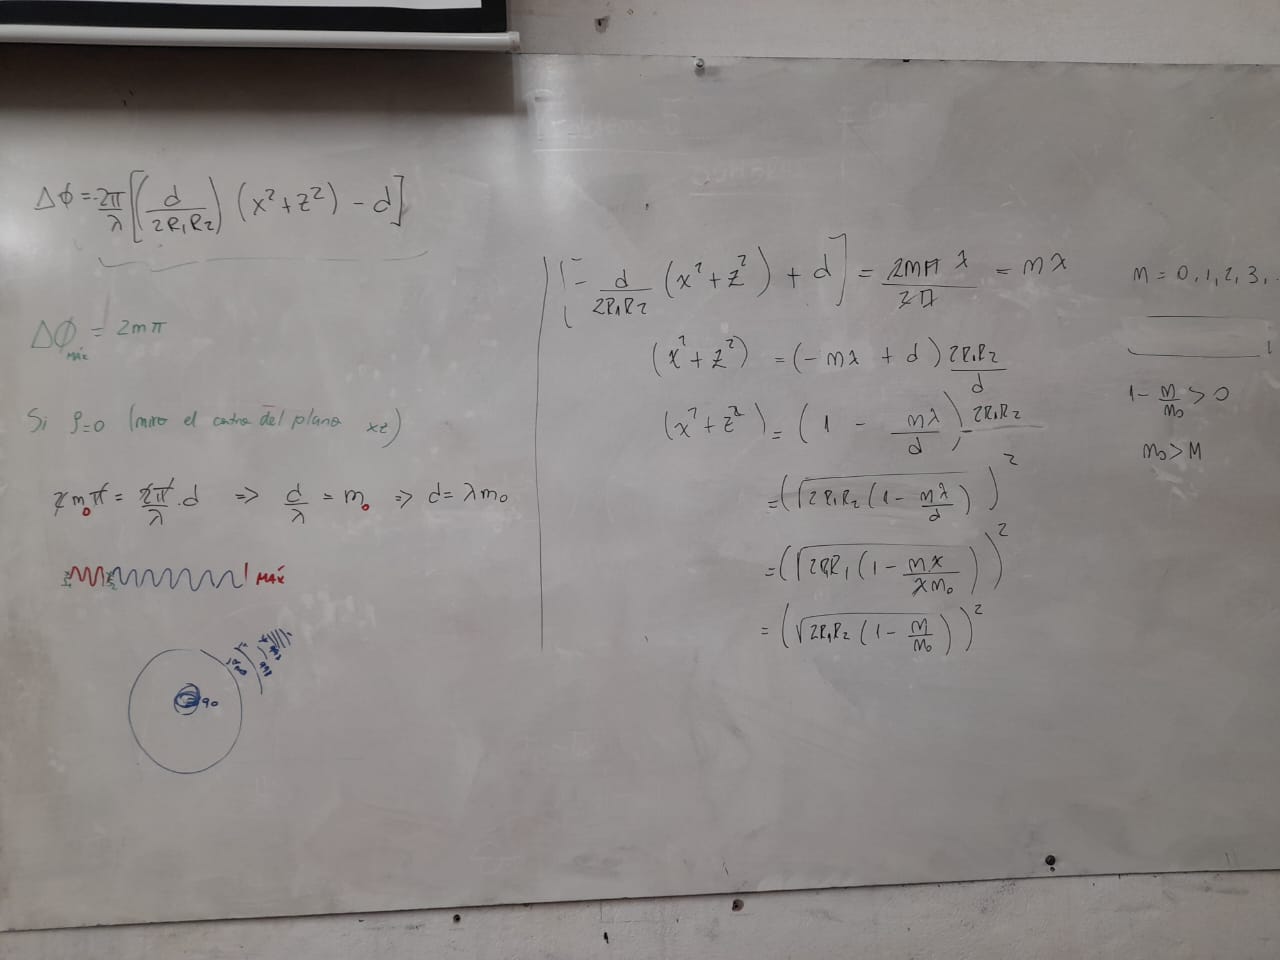 Δϕ = -2π/λ [(d/2R₁R₂) (x²+z²) - d]
Δϕ MÁX = 2mπ
Si ρ=0 (miro el centro del plano xz)
2m₀π = 2π/λ · d => d/λ = m₀ => d = λm₀
MÁX
90
[- d/2R₁R₂ (x²+z²) + d] = 2mπ λ/2π = mλ
(x²+z²) = (-mλ + d) 2R₁R₂/d
(x²+z²) = (1 - mλ/d) 2R₁R₂
= (√2R₁R₂(1 - mλ/d))²
= (√2R₂R₁(1 - mλ/λm₀))²
= (√2R₁R₂(1 - m/m₀))²
m = 0, 1, 2, 3,
1 - m/m₀ > 0
m₀ > m